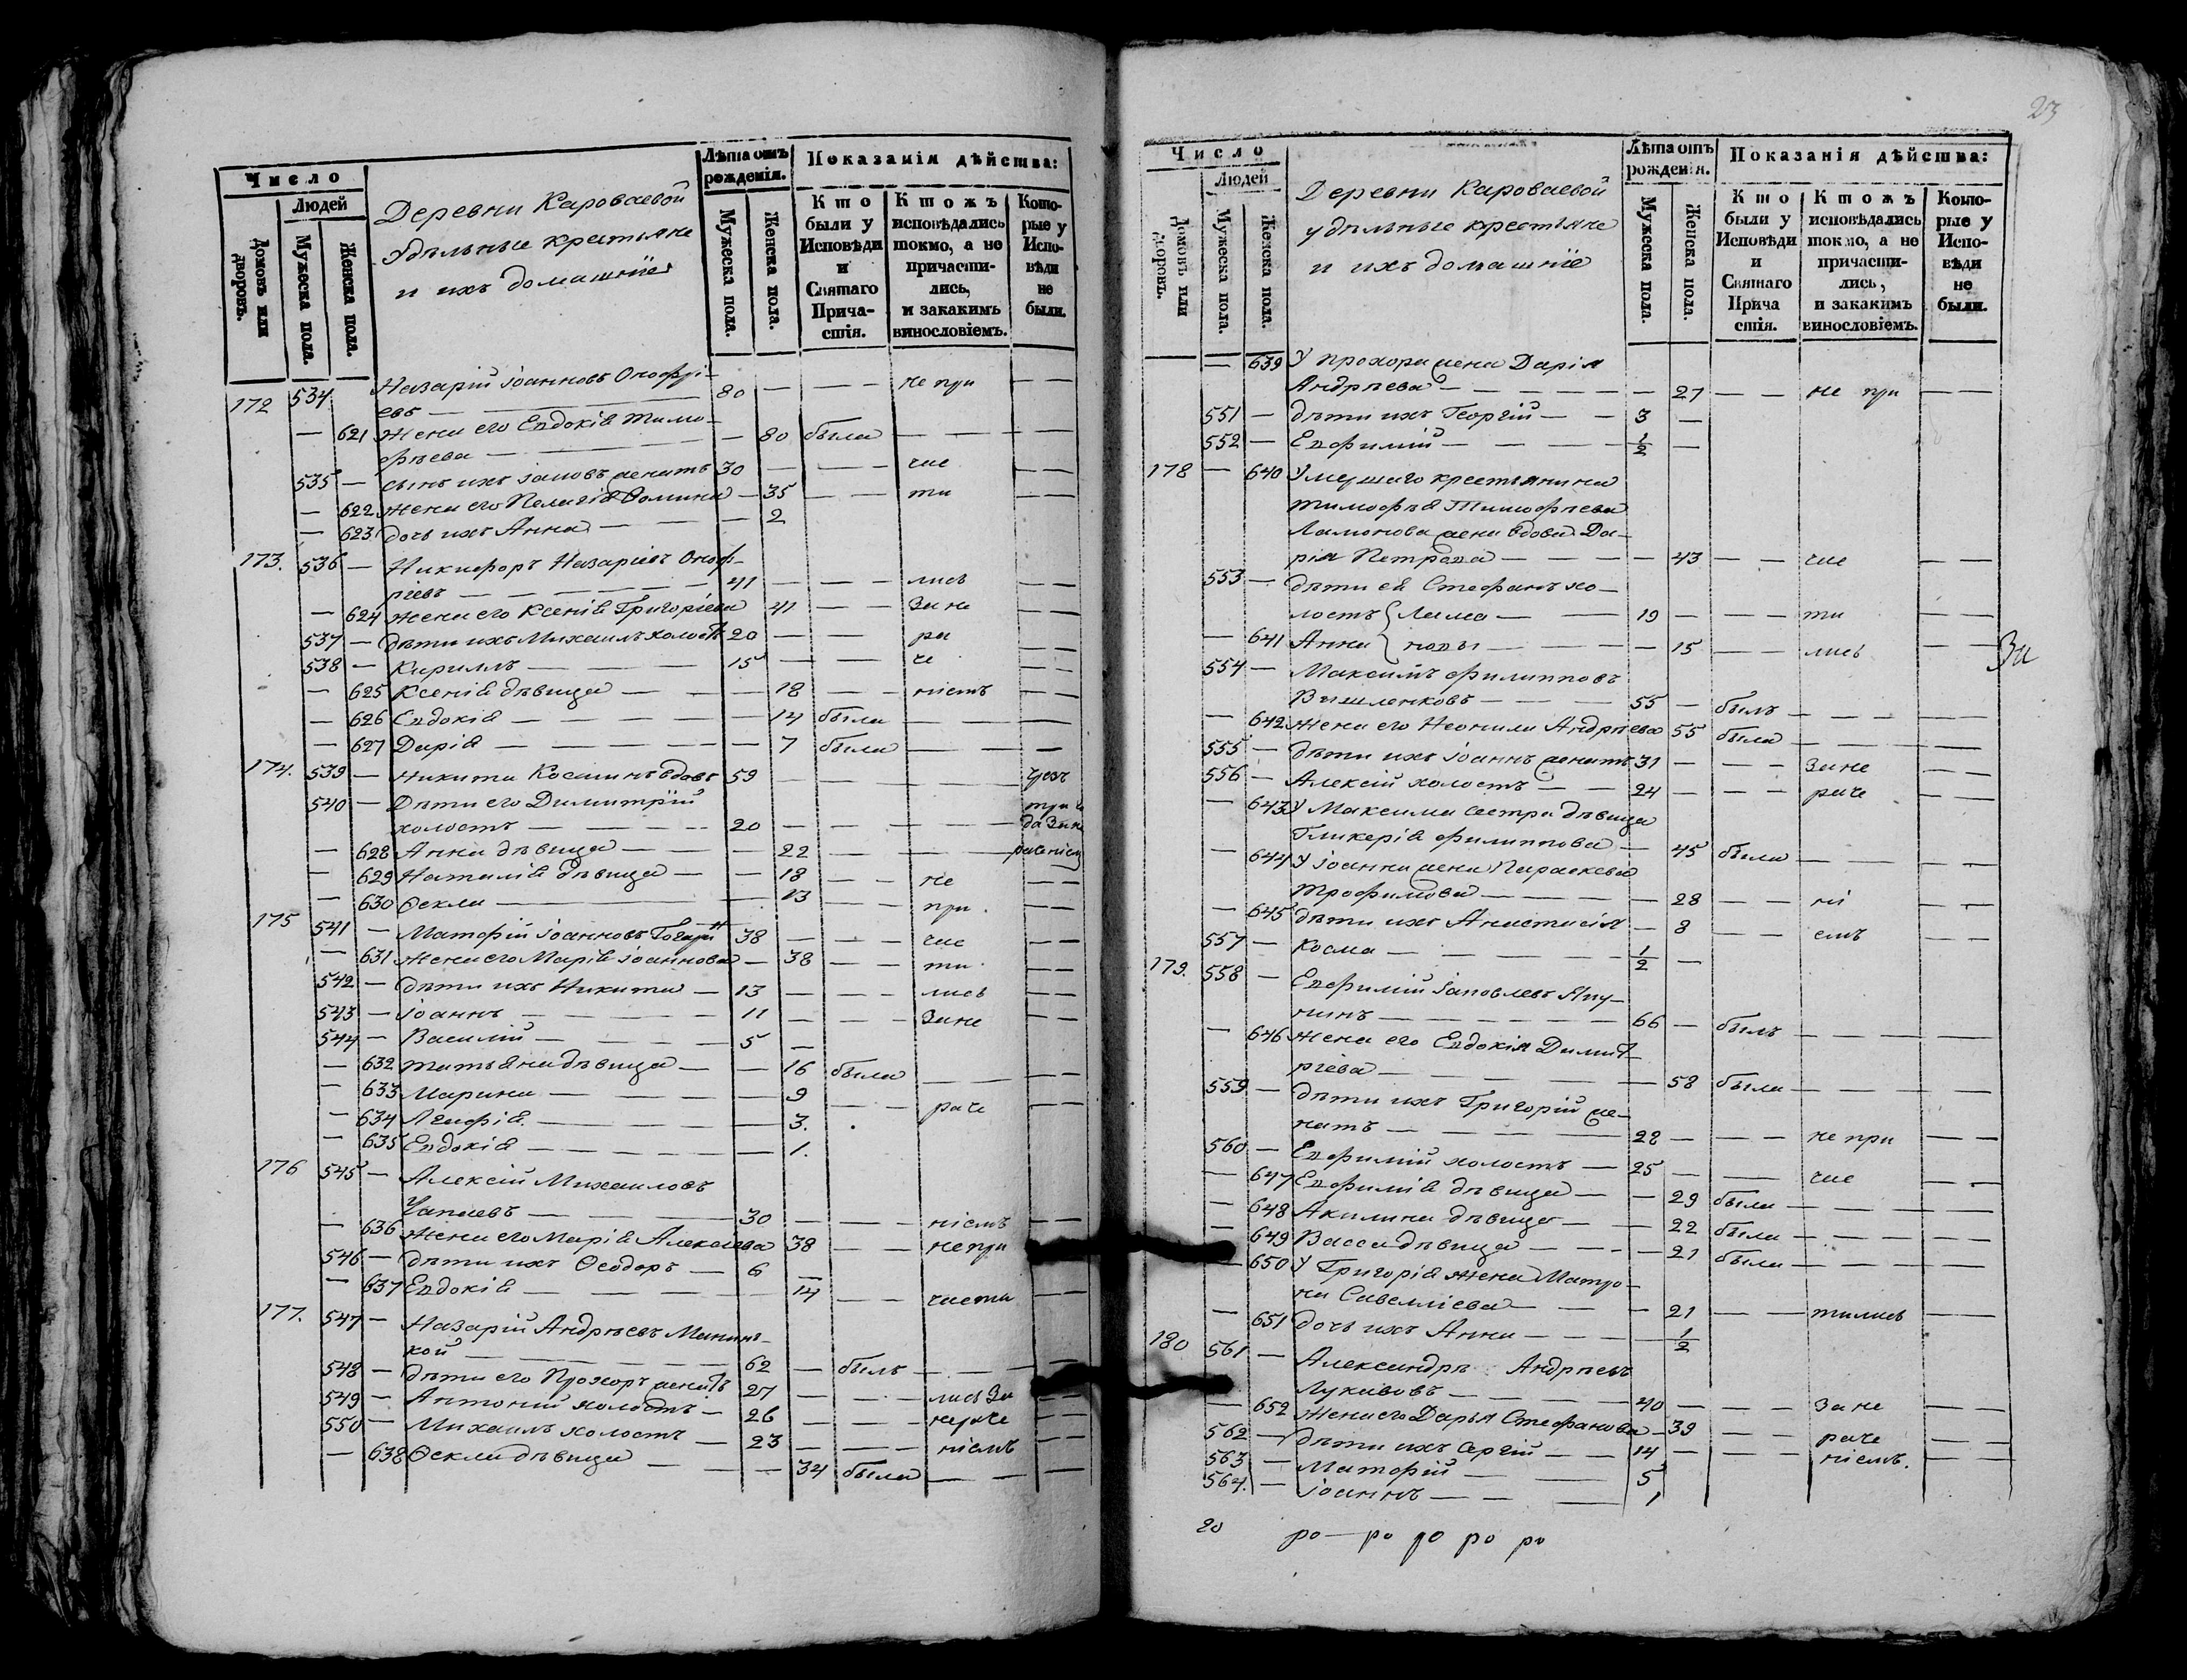 Число
Людей
Домовъ или дворовъ.
Мужеска пола.
Женска пола.
Деревни Кароваевой
Удѣльные крестьяне
и ихъ домашніе
Лѣта отъ рожденія.
Мужеска пола.
Женска пола.
Показанія дѣйства:
Кто были у Исповѣди и Святаго Причастія.
Ктожъ исповѣдались токмо, а не причастились, и закакимъ винословіемъ.
Которые у Исповѣди не были.
172 534 Назарій Іоанновъ Онофрі-
евъ — 80 — — — не при — —
— 621 Жена его Евдокія Тимо-
фѣева — — 80 была — — —
535 — сынъ ихъ Іаковъ женатъ 30 — — — час — —
— 622 жена его Пелагія Фомина — 35 — — ти — —
— 623 дочь ихъ Анна — — 2
173. 536 — Никифоръ Назаріевъ Оноф-
ріевъ — 41 — — — лись — —
— 624 жена его Ксенія Григоріева 41 — — За не — —
537 — дѣти ихъ Михаилъ холостъ 20 — — ра — —
538 — Кириллъ — 15 — — че — —
— 625 Ксенія дѣвица — — 18 — — ніемъ — —
— 626 Евдокія — — 14 была — — —
— 627 Дарія — — 7 была — — —
174. 539 — Никита Косминъ вдовъ 59 — — —
540 — Дѣти его Димитрій
холостъ — 20 — — — да За не
— 628 Анна дѣвица — — 22 — — — раченіемъ
— 629 Наталія дѣвица — — 18 — — не — —
— 630 Ѳекла — 13 — — при — —
175 541 — Матѳій Іоанновъ 38 — — — час — —
— 631 жена его Марія Іоаннова — 38 — — ти — —
542 — дѣти ихъ Никита — 13 — — — лись — —
543 — Іоаннъ — 11 — — — За не — —
544 — Василій — 5 —
— 632 Татьяна дѣвица — — 16 была — — —
— 633 Марина — — 9 — — раче — —
— 634 Агафія — — 3.
— 635 Евдокія — — 1.
176 545 — Алексій Михаиловъ
30 — — — ніемъ — —
— 636 Жена его Марія Алексіева 38 — — не при — —
546 — дѣти ихъ Ѳеодоръ — 6 —
— 637 Евдокія — — 14 — — части — —
177. 547 — Назарій Андрѣевъ Манинъ-
кой — 62 — былъ — — —
548 — дѣти его Прохоръ женатъ 27 — — — лись За — —
549 — Антоній холостъ — 26 — — — нераче — —
550 — Михаилъ холостъ — 23 — — — ніемъ — —
— 638 Ѳекла дѣвица — — 34 была — — —
23
Число
Людей
Домовъ или дворовъ.
Мужеска пола.
Женска пола.
Деревни Кароваевой
удѣльные крестьяне
и ихъ домашніе
Лѣта отъ рожденія.
Мужеска пола.
Женска пола.
Показанія дѣйства:
Кто были у Исповѣди и Святаго Причастія.
Ктожъ исповѣдались токмо, а не причастились, и закакимъ винословіемъ.
Которые у Исповѣди не были.
— 639 У Прохора жена Дарія
Андрѣева — — 27 — — не при — —
551 — дѣти ихъ Георгій — — 3 —
552 — Евфимій — 1/2 —
178 — 640 Умершаго крестьянина
Тимофѣя Тимофѣева
Ламонова жена вдова Да-
рія Петрова — — 43 — — час — —
553 — дѣти ея Стефанъ хо-
лостъ 19 — — — ти — —
— 641 Анна — — 15 — — лись — —
За
554 — Максимъ Филипповъ
Вишленковъ — 55 — былъ — — —
— 642 жена его Неонила Андрѣева 55 была — — —
555 — дѣти ихъ Іоаннъ женатъ 31 — — — За не — —
556 — Алексій холостъ — 24 — — — раче — —
— 643 У Максима сестра дѣвица
Гликерія Филиппова — 45 была — — —
— 644 У Іоанна жена Параскева
Трофимова — — 28 — — ні — —
— 645 дѣти ихъ Анастасія — 8 — — емъ — —
557 — Косма — 1/2 —
179. 558 — Евфимій Іаковлевъ Япу-
нинъ — 66 — былъ — — —
— 646 жена его Евдокія Димит-
ріева — — 58 была — — —
559 — дѣти ихъ Григорій же-
натъ — 28 — — — не при — —
560 — Евфимій холостъ — 25 — — час — —
— 647 Евфимія дѣвица — — 29 была — — —
— 648 Акилина дѣвица — — 22 была — — —
— 649 Васса дѣвица — — 21 была — — —
— 650 У Григорія жена Матро-
на Савелліева — — 21 — — тились —
— 651 дочь ихъ Анна — — 1/2
180 561 — Александръ Андрѣевъ
Лукановъ — 40 — — — За не — —
— 652 Жена его Дарья Стефанова — 39 — — раче — —
562 — дѣти ихъ Сергій — — 14 — — — ніемъ. — —
563 — Матѳій — 5
564. — Іоаннъ — — 1
20 ро — ро ро ро ро